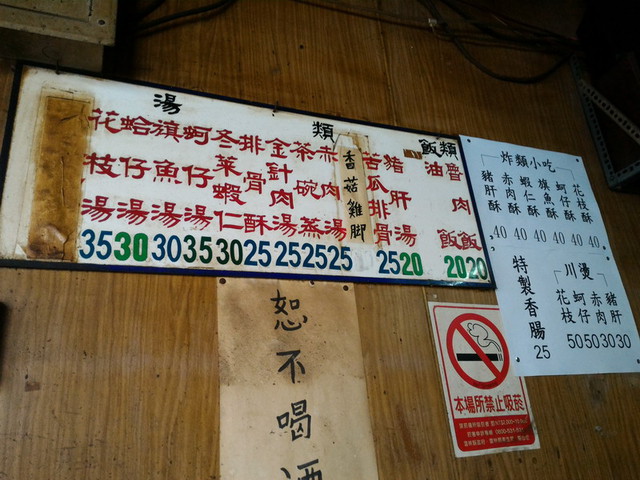 湯 類 飯 類
花枝湯 35
蛤仔湯 30
旗魚湯 30
蚵仔湯 35
冬菜蝦仁 30
排骨酥 25
金針肉湯 25
茶碗蒸 25
赤肉湯 25
香菇雞腳
苦瓜排骨 25
豬肝湯 20
油飯 20
魯肉飯 20
炸類小吃
豬肝酥 40
赤肉酥 40
蝦仁酥 40
旗魚酥 40
蚵仔酥 40
花枝酥 40
特製香腸 25
川燙
花枝 50
蚵仔 50
赤肉 30
豬肝 30
恕不喝酒
本場所禁止吸菸